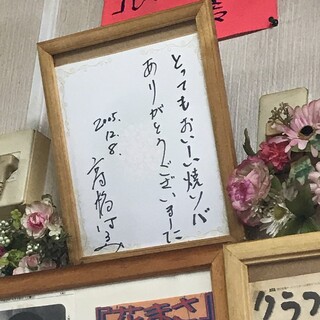 とってもおいしい焼ソバ
ありがとうございました
2005.
12.8.
高橋
花まさ
クラフ